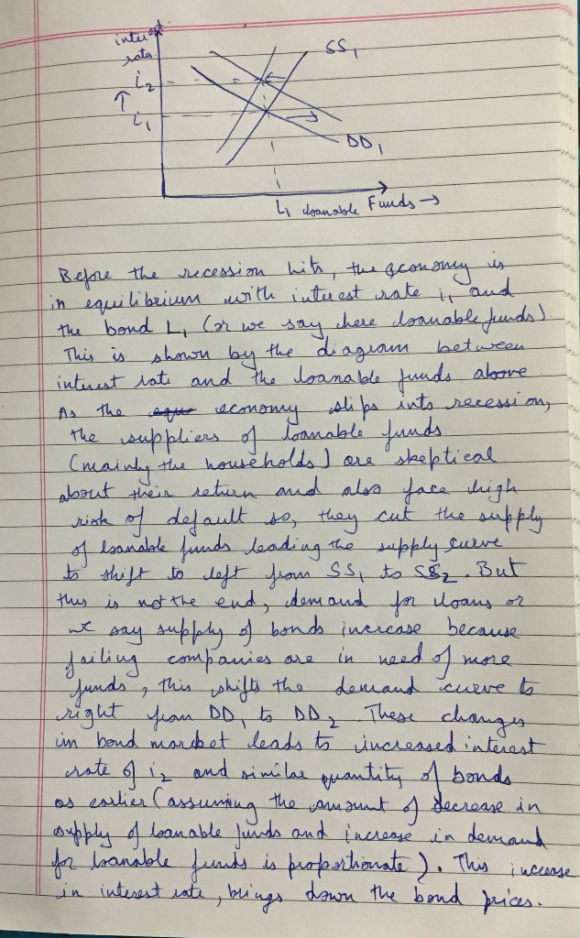 interest
rates
SS1
i2
↑
i1
DD1
L1 loanable Funds →
Before the recession hits, the economy is
in equilibrium with interest rate i1, and
the bond L1 (or we say here loanable funds)
This is shown by the diagram between
interest rate and the loanable funds above
As the economy slips into recession,
the suppliers of loanable funds
(mainly the households) are skeptical
about their return and also face high
risk of default so, they cut the supply
of loanable funds leading the supply curve
to shift to left from SS1 to SS2. But
this is not the end, demand for loans or
we say supply of bonds increase because
failing companies are in need of more
funds, this shifts the demand curve to
right from DD1 to DD2. These changes
in bond market leads to increased interest
rate of i2 and similar quantity of bonds
as earlier (assuming the amount of decrease in
supply of loanable funds and increase in demand
for loanable funds is proportionate). This increase
in interest rate, brings down the bond prices.